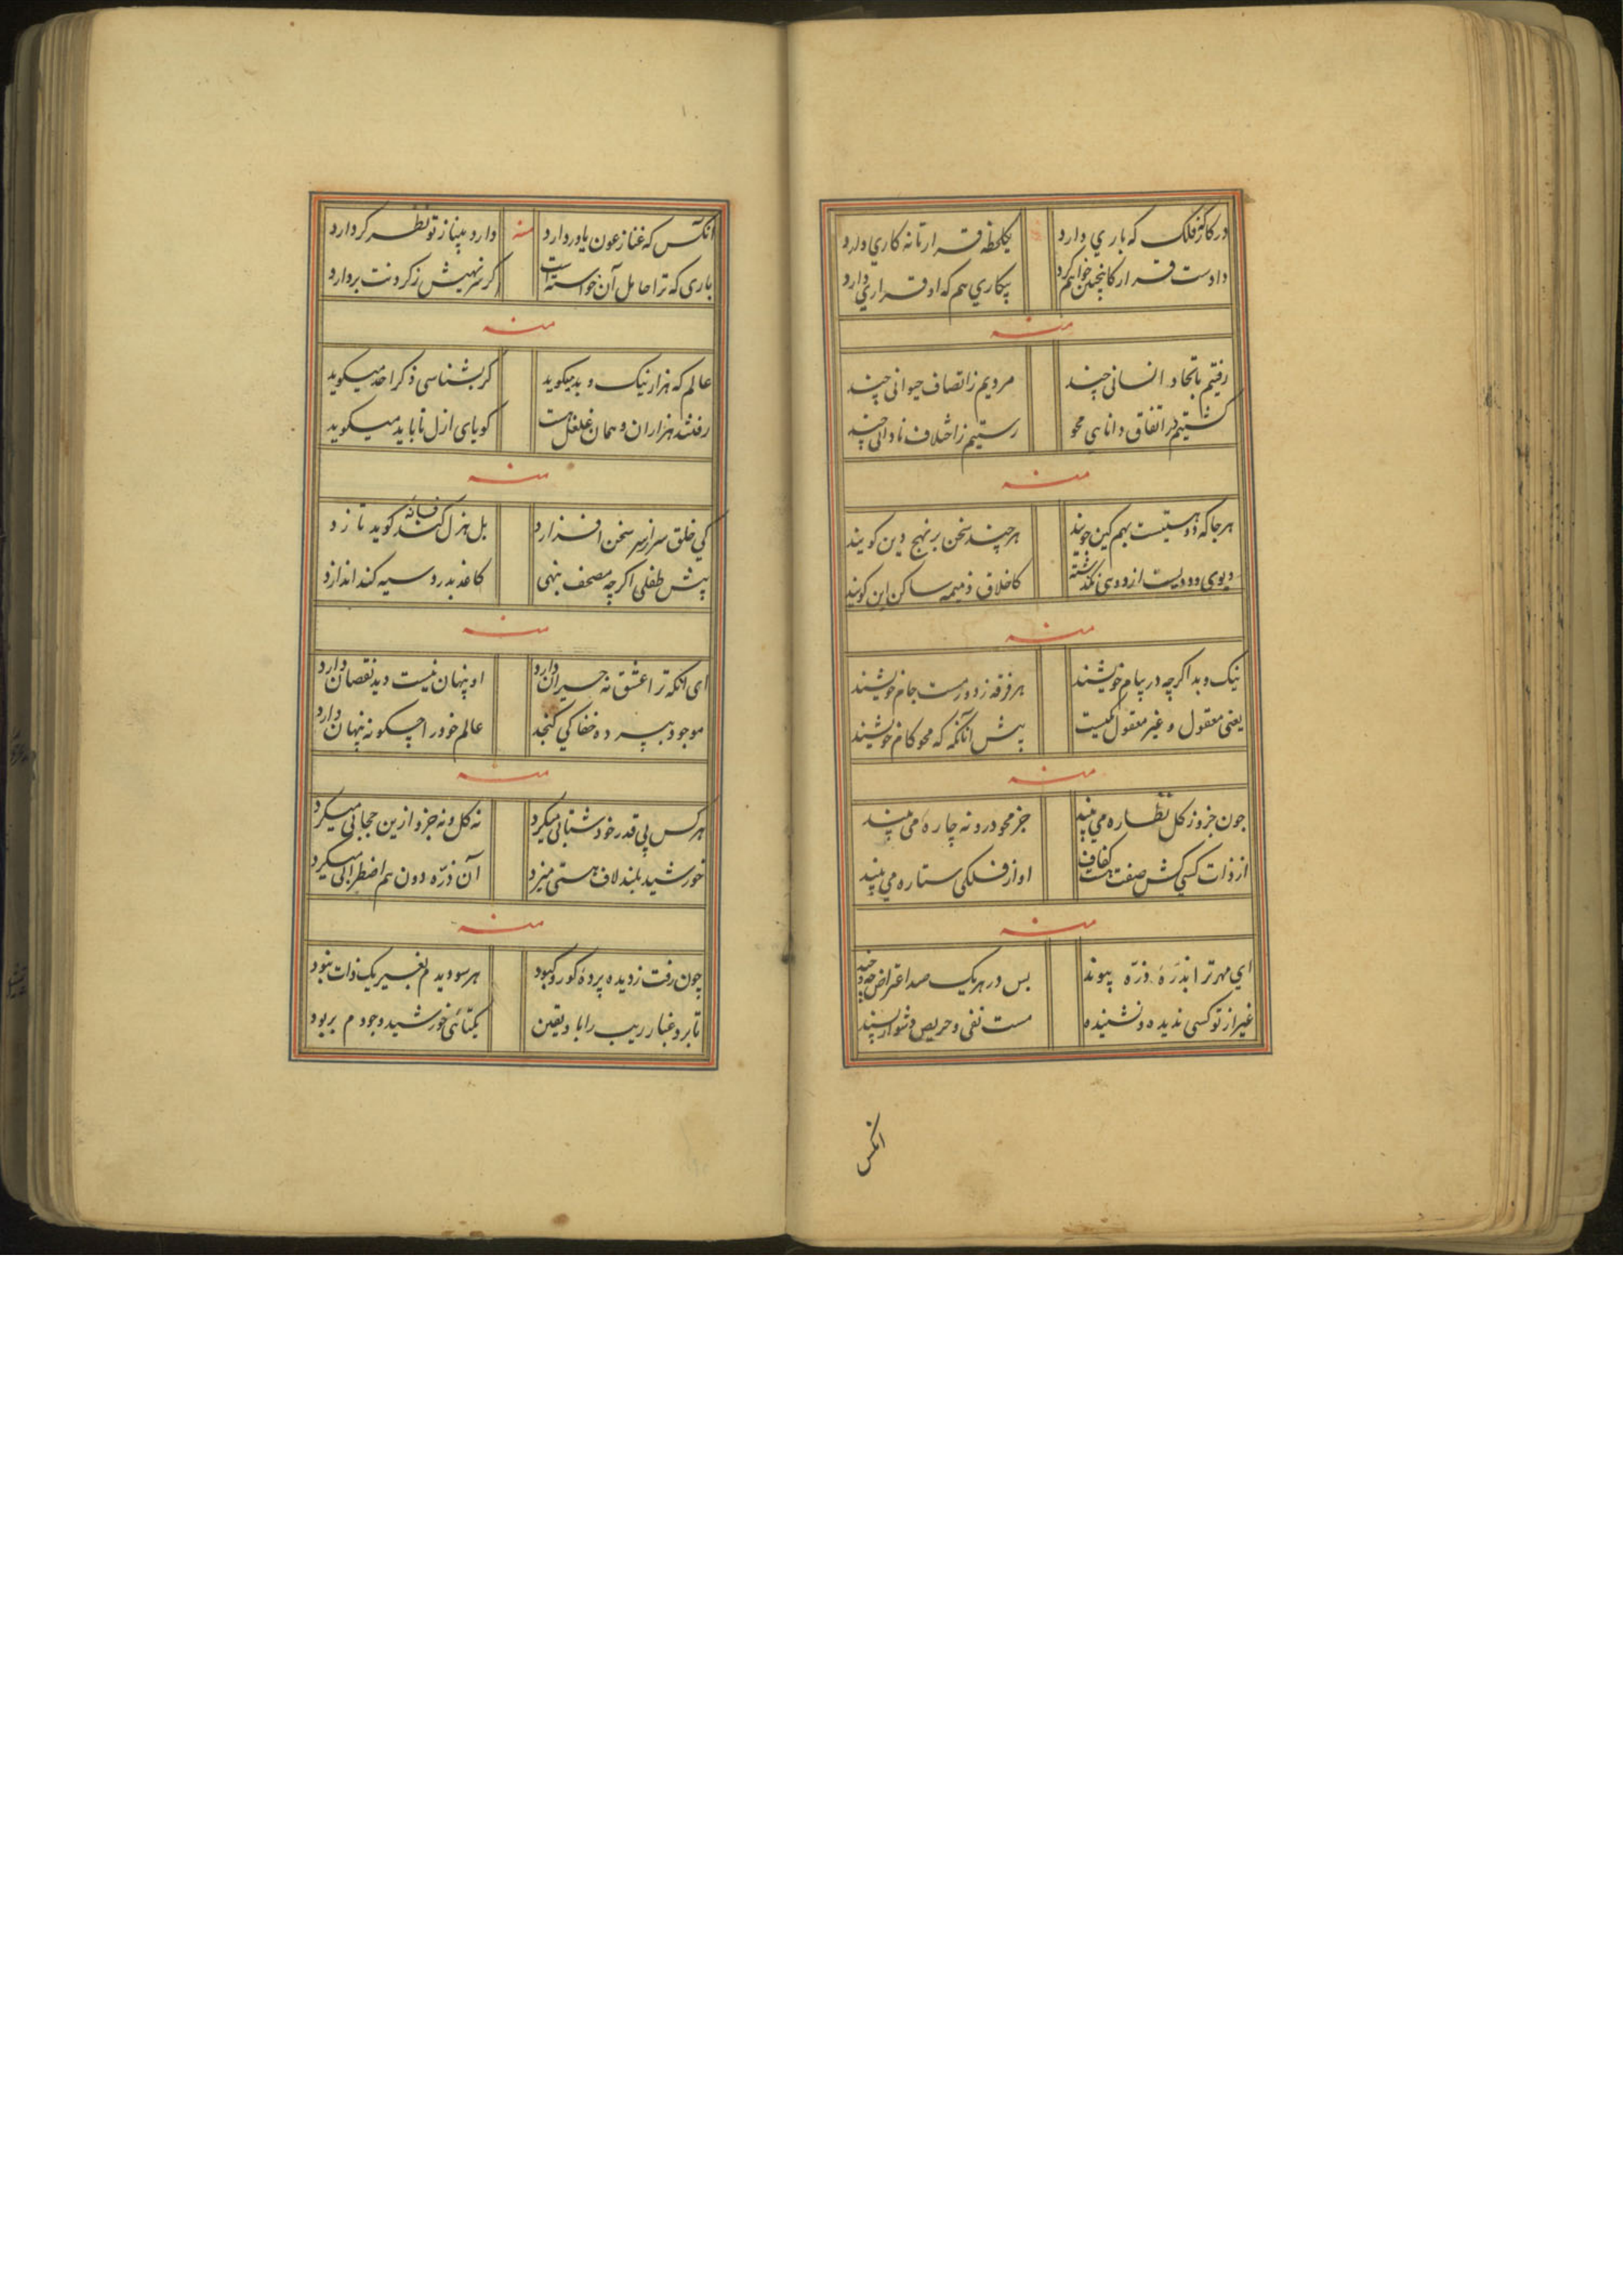 درکار فلک که باری دارد یکلحظه قرار تا نه کاری دارد
دادست قرار کانچنین خواهم کرد بیکاری هم که او قراری دارد
منه
رفتیم باتحاد انسانی چند مردیم ز اتصاف حیوانی چند
گشتیم در اتفاق دانایی محو رستیم ز اختلاف نادانی چند
منه
هرجا که دو هستیست بهم کین جویند هرچند سخن بر نهج دین گویند
دیوی ودودیست از دوی نگذشته کاخلاق ذمیمه ساکن این گویند
منه
نیک و بد اگرچه در پیام خویشند هر فرقه ز دور مست جام خویشند
یعنی معقول و غیر معقول یکیست پیش آنانکه محو کام خویشند
منه
چون جزو ز کل نظاره می بیند جز محو درو نه چاره می بیند
از ذات کسی کش صفت کفافیست او از فلکی ستاره می بیند
منه
ای مهر ترا بذره ذره پیوند پس در هر یک صد اعتراض چه و چند
غیر از تو کسی ندیده و نشنیده مست نفی و حریص دشوار پسند
انکس
انکس که غنا ز عون یاور دارد منه دارد بنیاز تو نظر گر دارد
باری که ترا حامل آن خواسته است گر ننهیش ز گردنت بردارد
منه
عالم که هزار نیک و بد میگوید گر بشناسی ذکر احد میگوید
رفتند هزاران و همان غلغل هست گویای ازل تا بابد میگوید
منه
کی خلق سر از سر سخن افرازد بل هزل کند فسانه گوید تازد
پیش طفلی اگرچه مصحف بنهی کاغذ بدرد سیه کند اندازد
منه
ای آنکه ترا عشق نه حیران دارد او پنهان نیست دید نقصان دارد
موجود بپرده خفا کی گنجد عالم خود را چگونه پنهان دارد
منه
هرکس پی قدر خود شتابی میکرد نه کل و نه جزو ازین حجابی میکرد
خورشید بلند لاف هستی میزد آن ذره دون هم اضطرابی میکرد
منه
چون رفت ز دیده پرده کور و کبود هر سو دیدم بغیر یک ذات نبود
تا برد غبار ریب را باد یقین یکتائی خورشید وجودم بربود